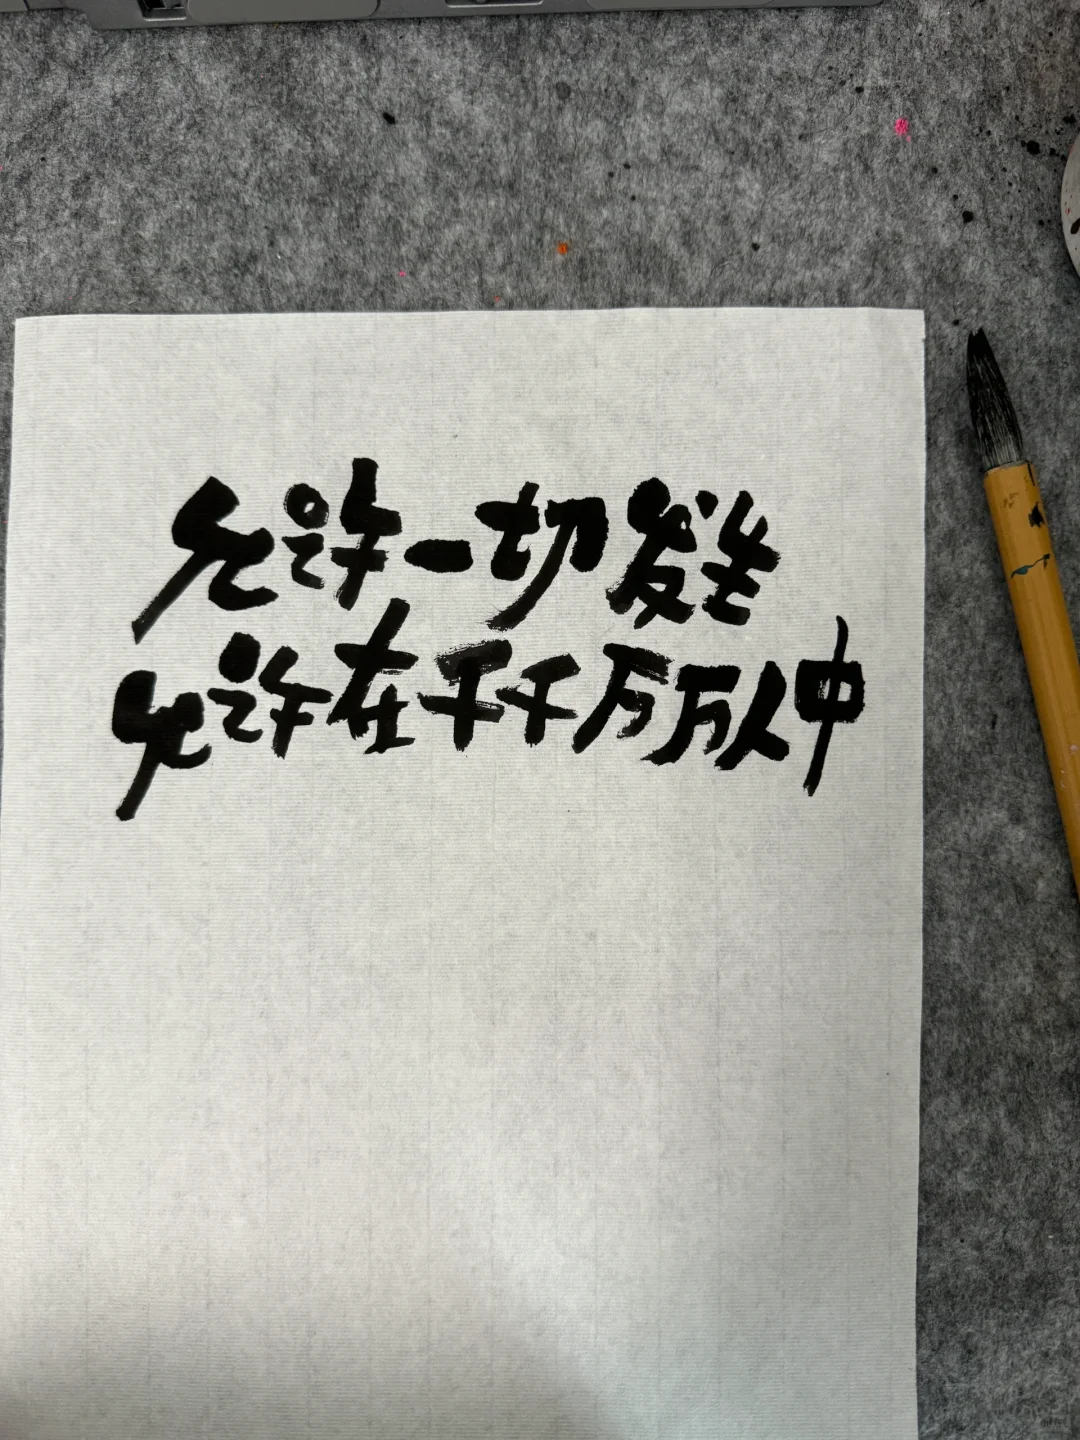 允许一切发生
允许在千千万万人中